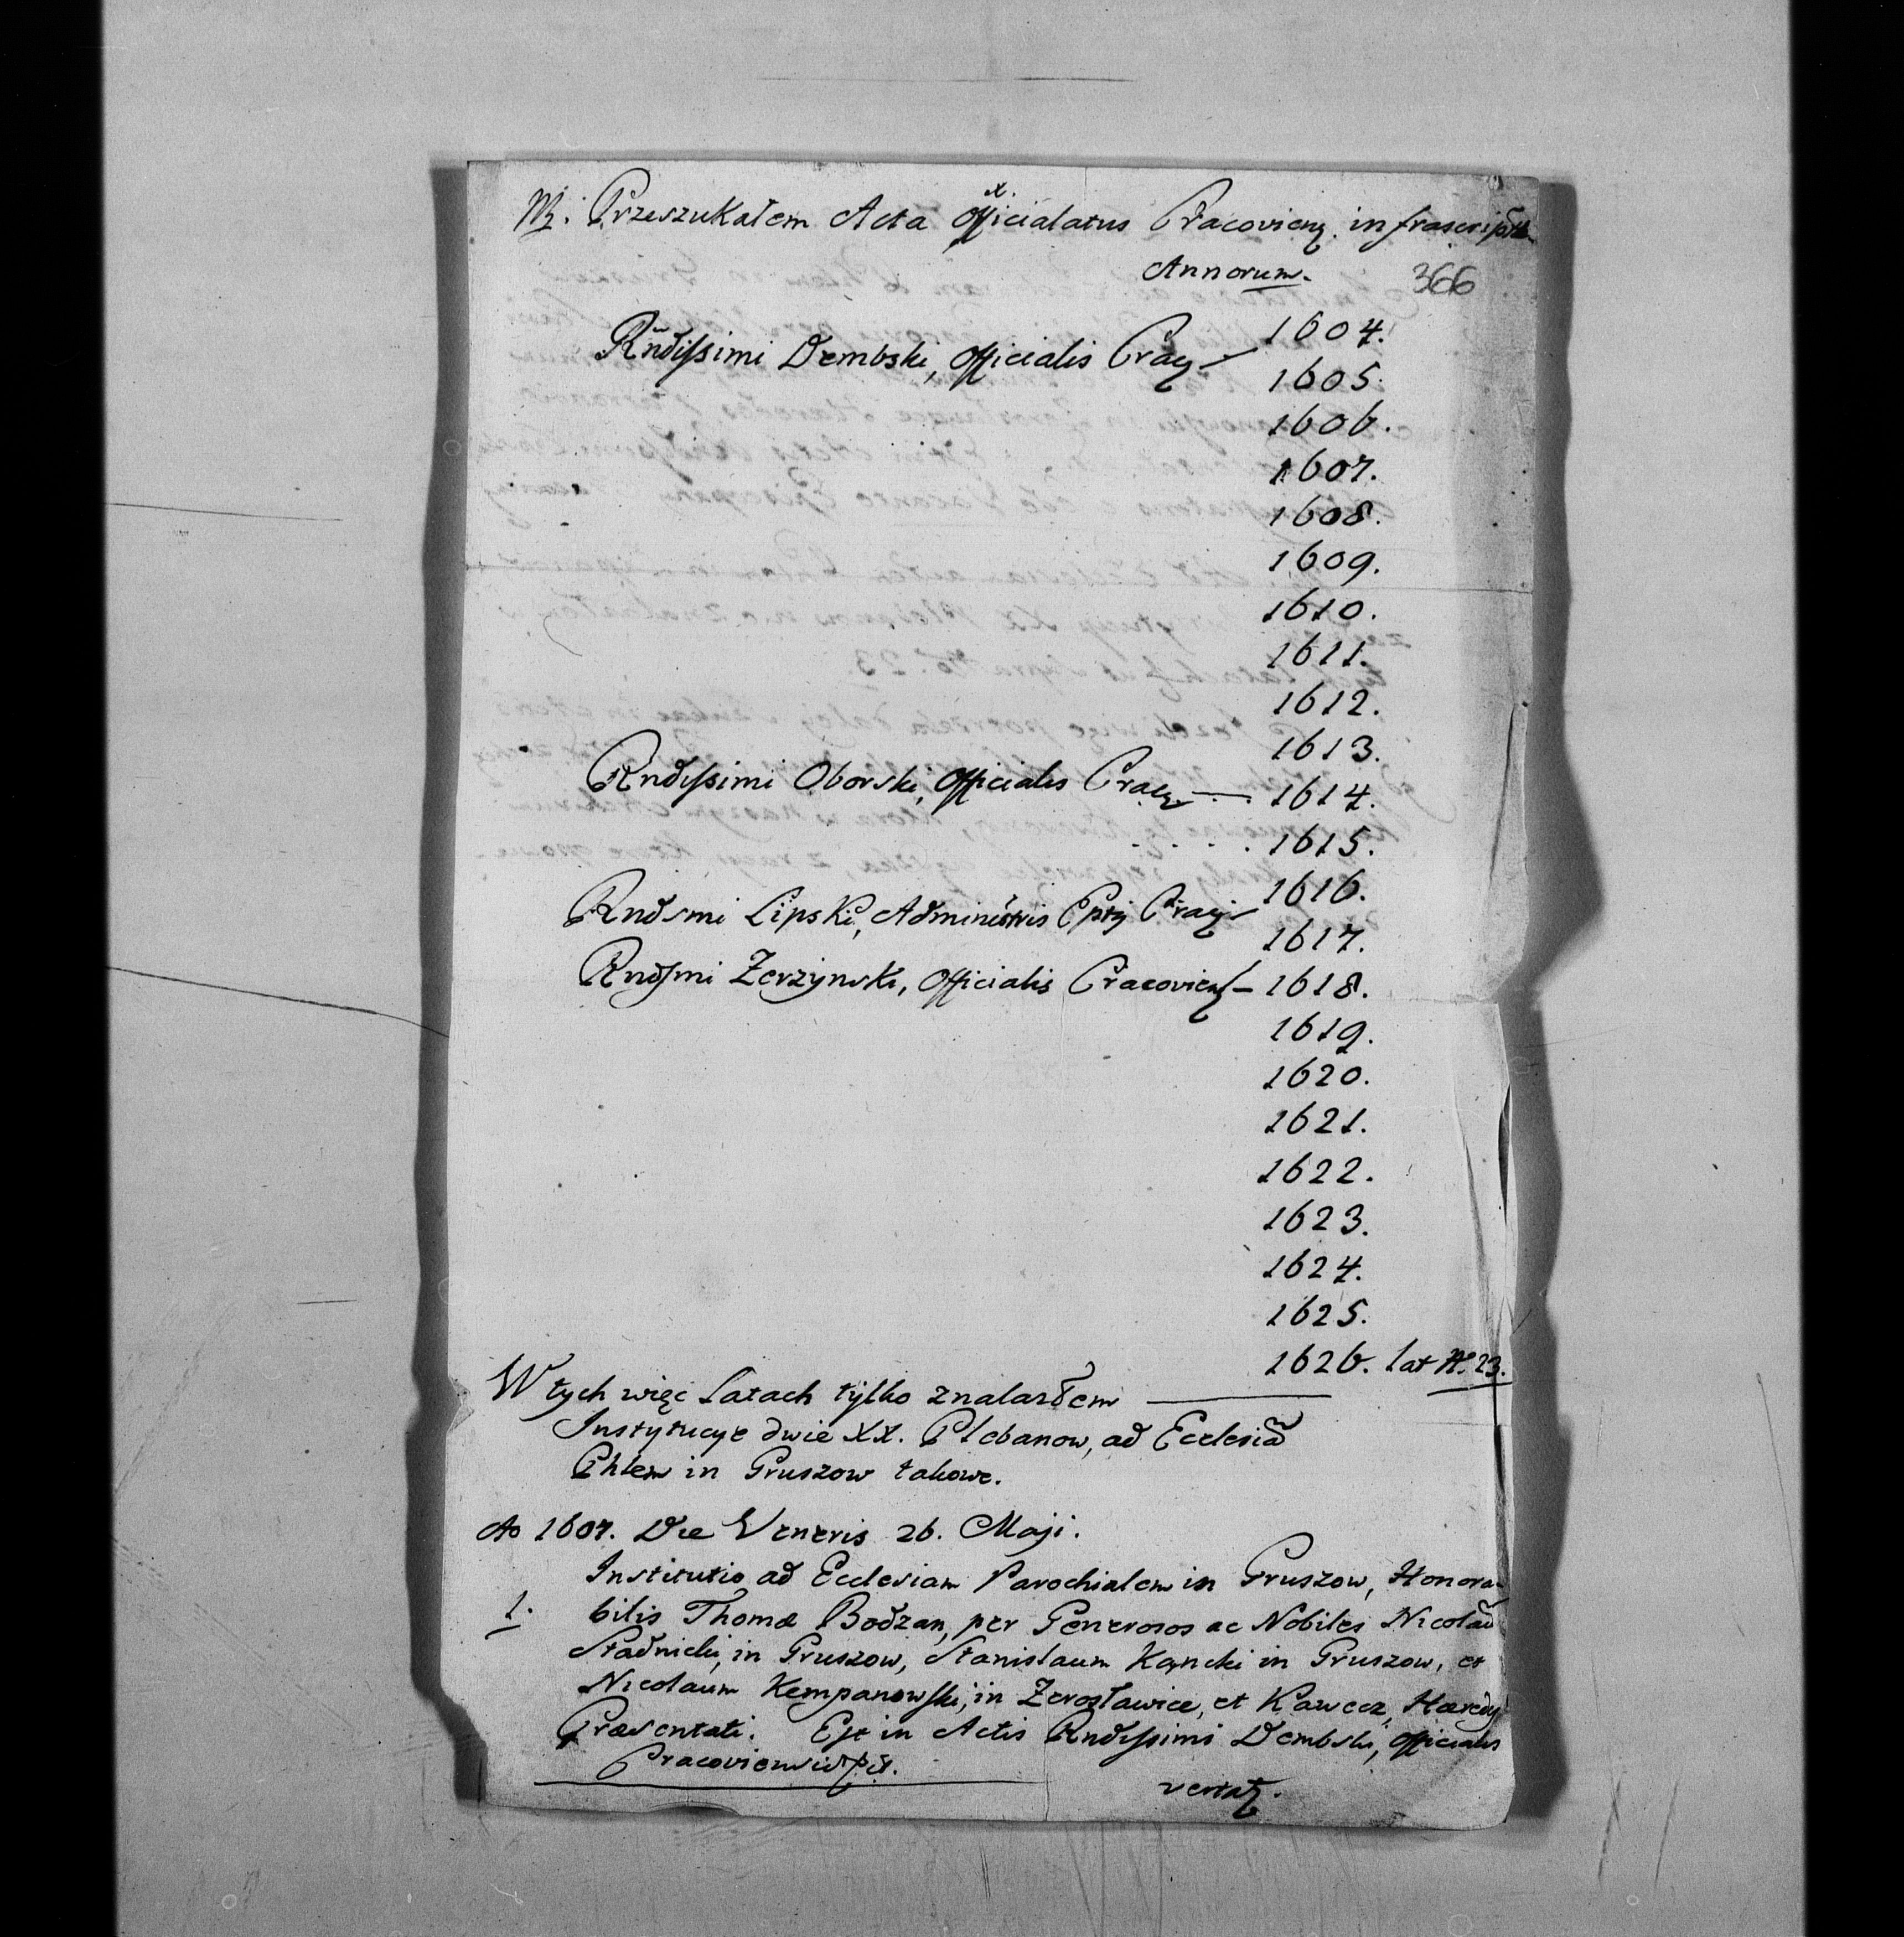 NB: Przeszukałem Acta Officialatus Cracovien. infrascriptor.
Annorum.
366
1604.
Rndissimi Dembski, Officialis Crac.
1605.
1606.
1607.
1608.
1609.
1610.
1611.
1612.
1613.
Rndissimi Oborski, Officialis Crac. — 1614.
1615.
1616.
Rndsmi Lipski, Administris Eptŷ Crac.
1617.
Rndsmi Zerzynski, Officialis Cracovien. — 1618.
1619.
1620.
1621.
1622.
1623.
1624.
1625.
1626. lat N. 23.
W tych więc Latach tylko znalazłem
Instytucye dwie XX. Plebanow, ad Ecclesiā
Phlem in Gruszow takowe.
Ao 1607. Die Veneris 26. Maji.
Institutio ad Ecclesiam Parochialem in Gruszow, Honora-
1. bilis Thomæ Bodzan, per Generosos ac Nobiles Nicolaū
Stadnicki, in Gruszow, Stanislaum Kąncki in Gruszow, et
Nicolaum Kempanowski, in Zerosławice, et Kawecz, Hæredes
Præsentati. Est in Actis Rndissimi Dembski, Officialis
Cracoviensis
vertat.